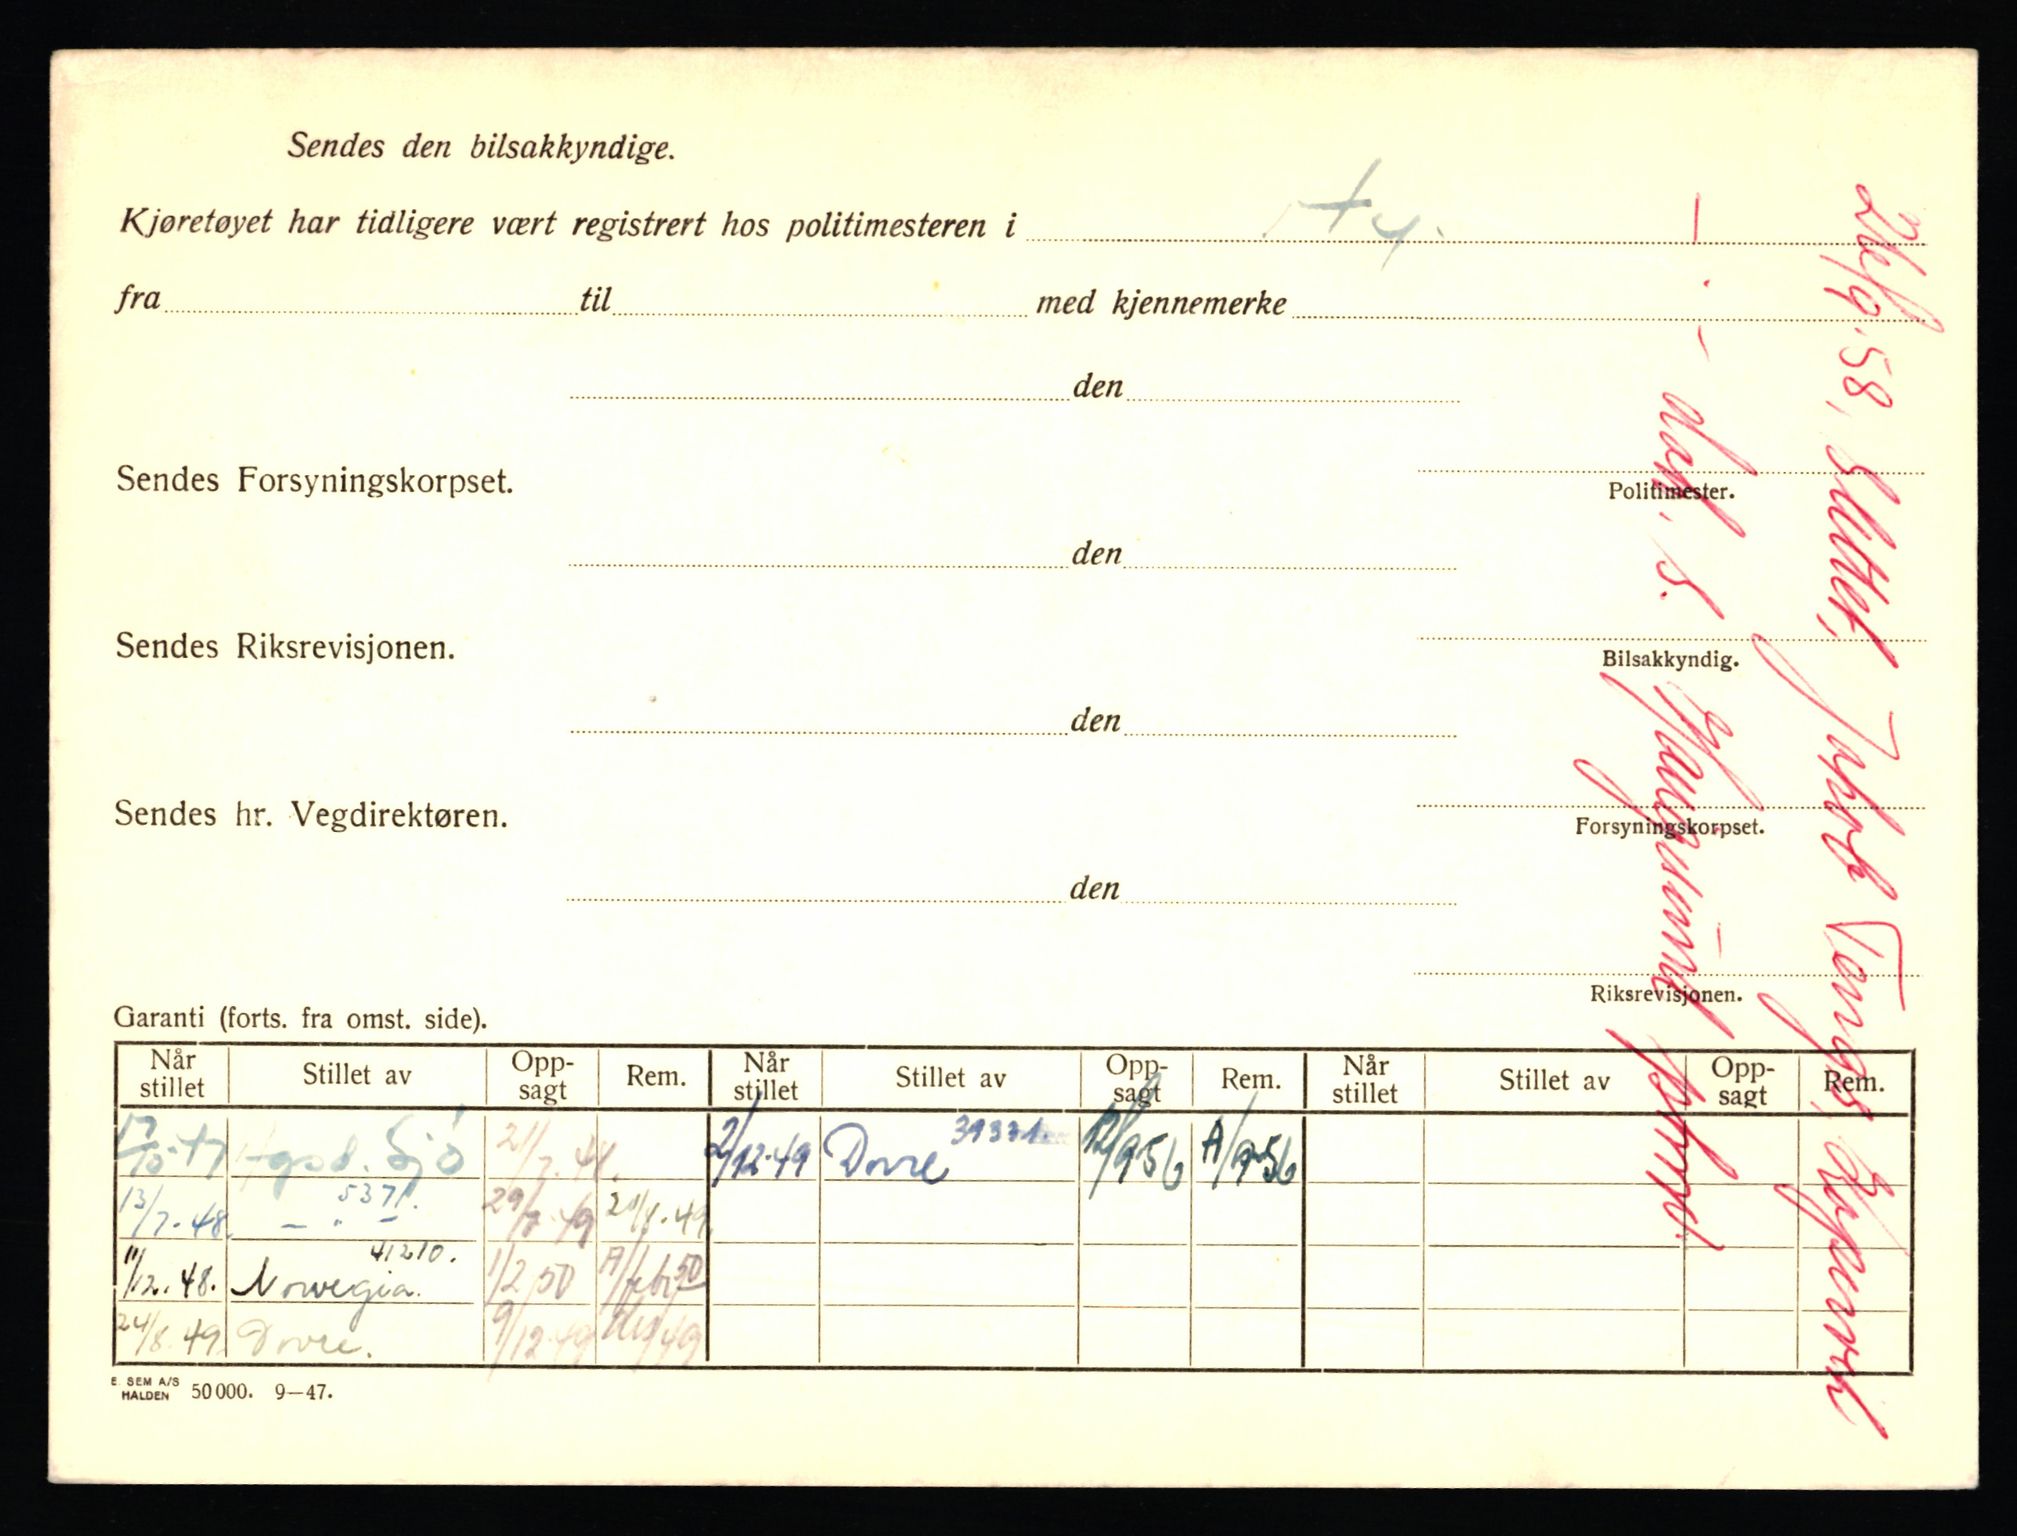 Sendes den bilsakkyndige.
Kjøretøyet har tidligere vært registrert hos politimesteren i Ny.
fra til med kjennemerke
den
Sendes Forsyningskorpset.
Politimester.
den
Sendes Riksrevisjonen.
Bilsakkyndig.
den
Sendes hr. Vegdirektøren.
Forsyningskorpset.
den
Riksrevisjonen.
Garanti (forts. fra omst. side).
Når stillet Stillet av Opp-sagt Rem. Når stillet Stillet av Opp-sagt Rem. Når stillet Stillet av Opp-sagt Rem.
Sjö 2/12-49 Dovre 12/9 56 A/9-56
13/7-48 5371. - " - 29/7-49
11/12.48. Norwegia. 41210. 1/2 50 A/febr 50
24/8.49 Dovre. 9/12-49
E. SEM A/S HALDEN 50 000. 9—47.
58, Slettet,